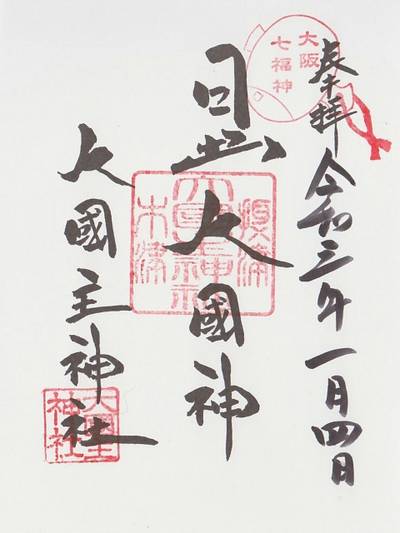 奉拝
令和三年一月四日
大阪
七福神
日出大國神
大國主神社
大國主
神社